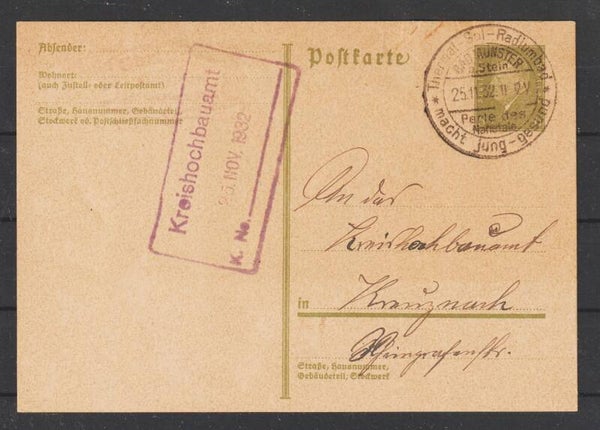 Absender:
Wohnort:
(auch Zustell- oder Leitpostamt)
Straße, Hausnummer, Gebäudeteil,
Stockwerk od. Postschließfachnummer
Kreishochbauamt
25. NOV. 1932
K. No.
Postkarte
Thermal Sol-Radiumbad
BAD MÜNSTER
a. Stein
25.11.32.11-12V
Perle des
Nahetals
macht jung-gesund
An das
Kreishochbauamt
in Kreuznach
Rheingrafenstr.
Straße, Hausnummer,
Gebäudeteil, Stockwerk